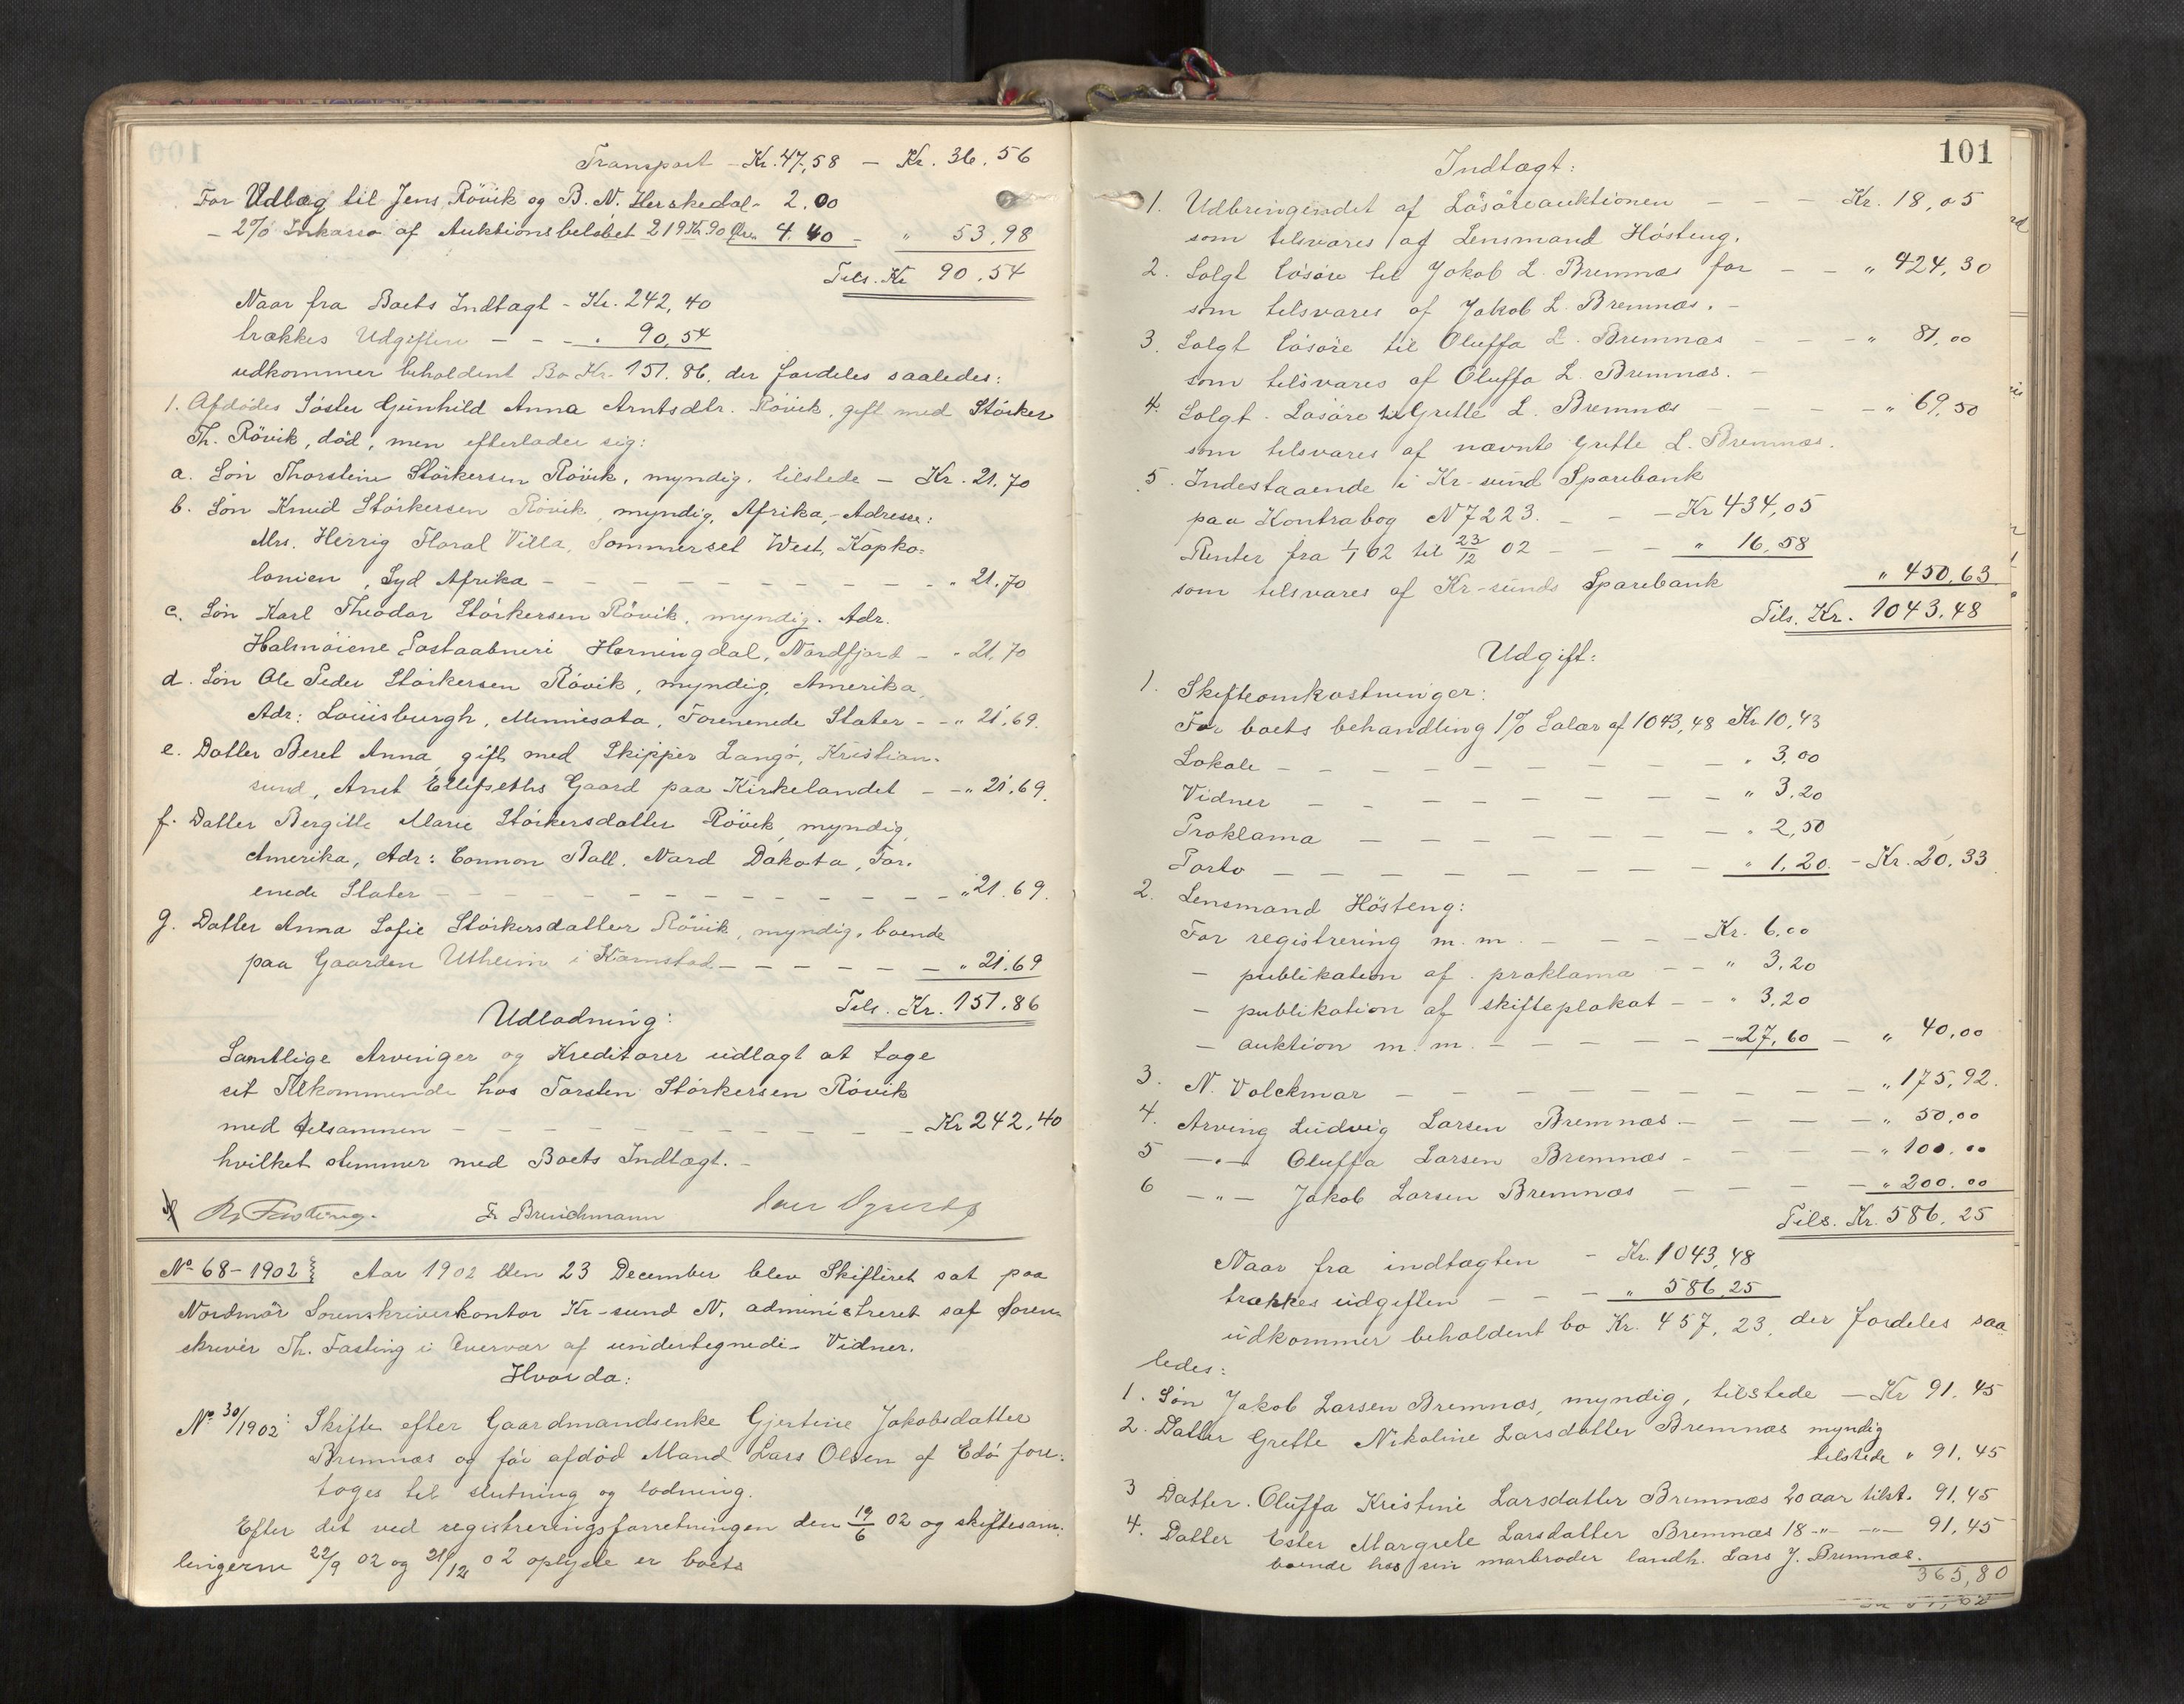 Transport - Kr. 47,58 - Kr. 36.56
For Udlæg til Jens Rövik og B. N. Herskedal - 2.00
- 2% Inkasso af Auktionsbelöbet 219 Kr. 90 Öre 4.40 - " 53,98
Tils. Kr 90.54
Naar fra Boets Indtægt - Kr. 242,40
trækkes Udgiften - - - " 90,54
udkommer beholdent Bo Kr. 151.86, der fordeles saaledes:
1. Afdödes Söster Gunhild Anna Arntsdtr. Rövik, gift med Störker
Th. Rövik, död, men efterlader sig:
a. Sön Thorstein Störkersen Rövik, myndig, tilstede - Kr. 21.70
b. Sön Knud Störkersen Rövik, myndig, Afrika, - Adresse:
Mrs. Herrig Floral Villa, Sommerset West, Kapko-
lonien, Syd Afrika - - - - - - - - - - " 21.70
c. Sön Karl Theodor Störkersen Rövik, myndig. Adr.
Halmöiene Postaabneri Horningdal, Nordfjord - " 21.70
d. Sön Ole Peder Störkersen Rövik, myndig, Amerika,
Adr: Louisburgh, Minnesota, Forenenede Stater - - " 21.69.
e. Datter Beret Anna, gift med Skipper Langö, Kristian-
sund, Arnt Ellefseths Gaard paa Kirkelandet - - " 21.69.
f. Datter Bergitte Marie Störkersdatter Rövik, myndig,
Amerika, Adr: Connon Ball, Nord Dakota, For.
enede Stater - - - - - - - - - - - " 21.69.
g. Datter Anna Sofie Störkersdatter Rövik, myndig, boende
paa Gaarden Utheim i Kornstad - - - - - - " 21.69
Tils. Kr. 151.86
Udlodning:
Samtlige Arvinger og Kreditorer udlagt at tage
sit Tilkommende hos Torsten Störkersen Rövik
med tilsammen - - - - - - - - - - Kr 242,40
hvilket stemmer med Boets Indtægt. -
Th Fasting. Fr Bruichmann
No 68-1902 Aar 1902 den 23 December blev Skifteret sat paa
Nordmör Sorenskriverkontor Kr-sund N, administreret af Soren-
skriver Th. Fasting i Overvær af undertegnede Vidner.
Hvorda:
No 30/1902: Skifte efter Gaardmandsenke Gjertine Jakobsdatter
Bremnæs og för afdöd Mand Lars Olsen af Edö fore-
toges til slutning og lodning.
Efter det ved registreringsforretningen den 19/6 02 og skiftesam-
lingerne 22/9 02 og 21/12 02 oplyste er boets
101
Indtægt:
1. Udbringendet af Lösöreauktionen - - - Kr. 18,05
som tilsvares af Lensmand Hösteng.
2. Solgt lösöre til Jakob L. Bremnæs for - - " 424,30
som tilsvares af Jakob L. Bremnæs. -
3. Solgt lösöre til Oluffa L. Bremnæs - - - " 81,00
som tilsvares af Oluffa L. Bremnæs. -
4. Solgt Lösöre til Grette L. Bremnæs - - - " 69,50
som tilsvares af nævnte Grette L. Bremnæs.
5. Indestaaende i Kr-sund Sparebank
paa Kontrabog N 7223. - - - Kr 434,05
Renter fra 1/1 02 til 23/12 02 - - - " 16,58
som tilsvares af Kr-sunds Sparebank " 450,63
Tils. Kr. 1043.48
Udgift:
1. Skifteomkostninger:
For boets behandling 1% Salær af 1043,48 Kr. 10,43
Lokale - - - - - - - - " 3,00
Vidner - - - - - - - - " 3.20
Proklama - - - - - - - " 2,50
Porto - - - - - - - - " 1,20. - Kr. 20,33
2. Lensmand Hösteng:
For registrering m. m. - - - - Kr. 6,00
- publikation af proklama - - " 3,20
- publikation af skifteplakat - - " 3,20
- auktion m. m. - - - - - - " 27,60 - " 40,00
3. N. Volckmar - - - - - - - - - " 175,92.
4. Arving Ludvig Larsen Bremnæs - - - - - " 50,00
5 - " - Oluffa Larsen Bremnæs - - - - - " 100.00
6 - " - Jakob Larsen Bremnæs - - - - - " 200.00
Tils. Kr. 586,25
Naar fra indtægten - Kr. 1043,48
trækkes udgiften - - - " 586,25
udkommer beholdent bo Kr. 457,23, der fordeles saa
ledes:
1. Sön Jakob Larsen Bremnæs, myndig, tilstede - Kr 91,45
2. Datter Grette Nikoline Larsdatter Bremnæs myndig
tilstede " 91,45
3 Datter. Oluffa Kristine Larsdatter Bremnæs 20 aar tilst. 91,45
4. Datter Ester Margrete Larsdatter Bremnæs 18 -"- -"- 91,45
boende hos sin morbroder landh. Lars J. Bremnæs.
365,80